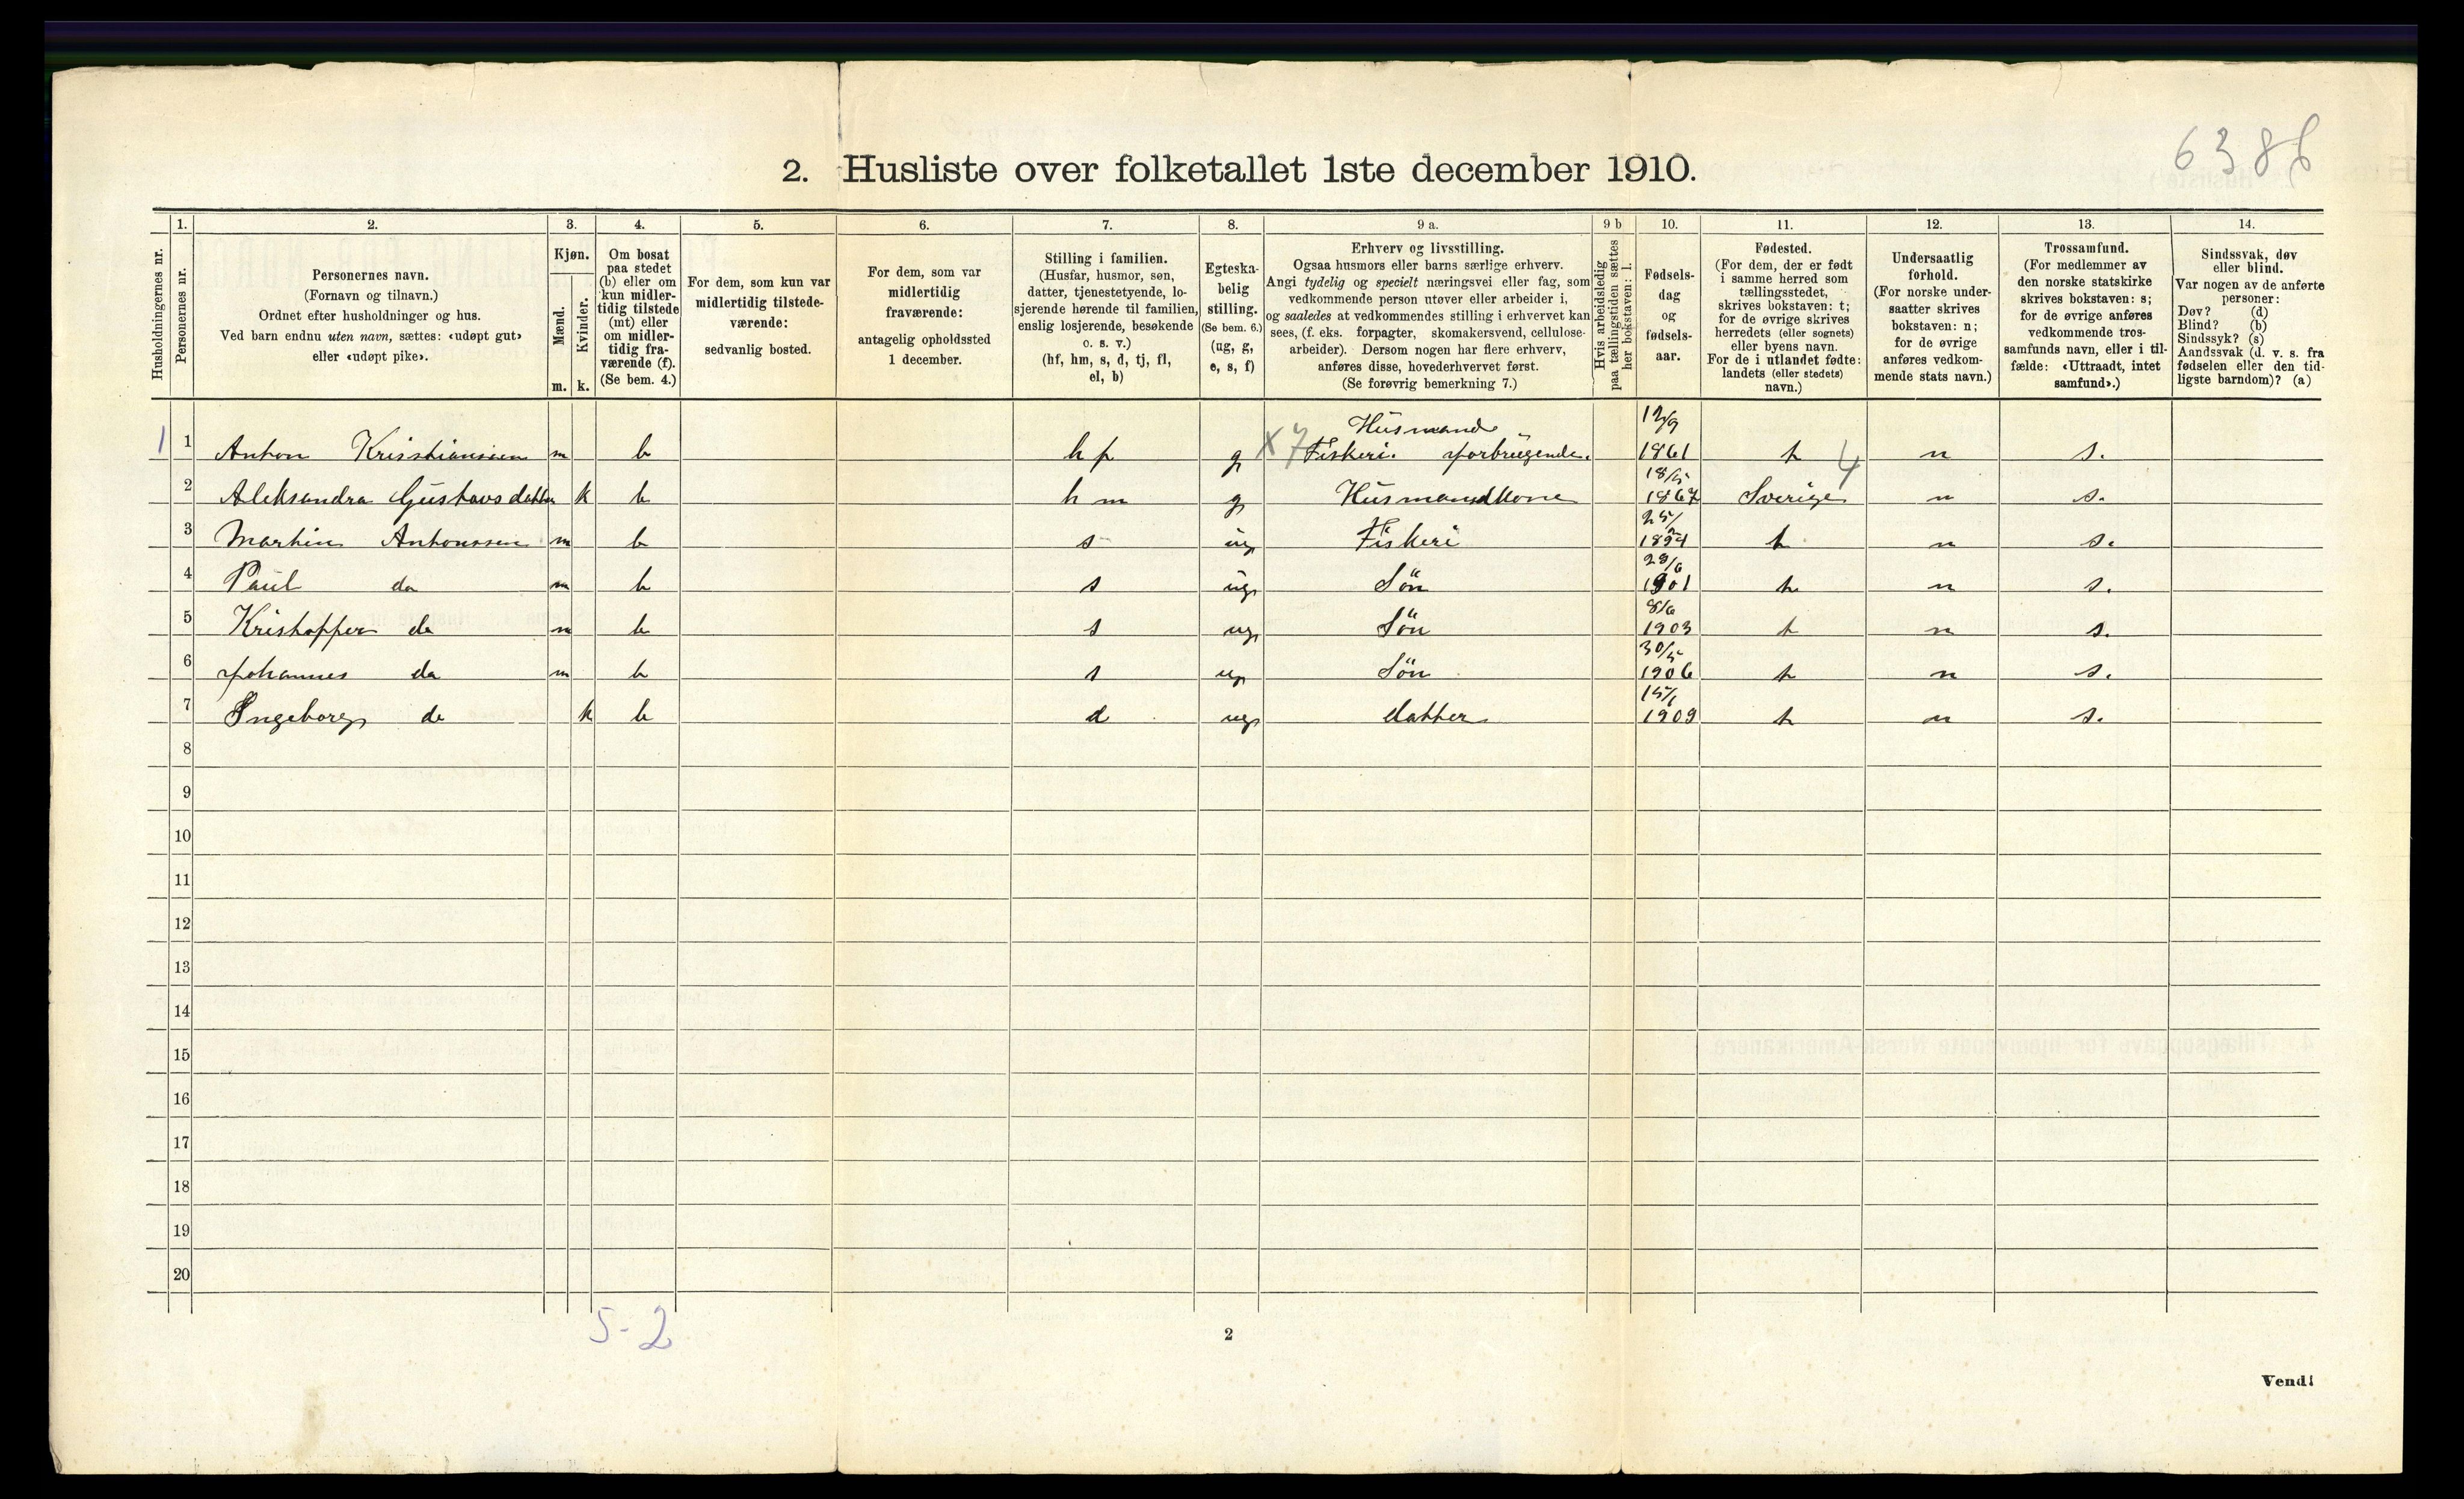 6388
2. Husliste over folketallet 1ste december 1910.
Husholdningernes nr.
1.
Personernes nr.
2.
Personernes navn.
(Fornavn og tilnavn.)
Ordnet efter husholdninger og hus.
Ved barn endnu uten navn, sættes: «udøpt gut»
eller «udøpt pike».
3.
Kjøn.
Mænd.
Kvinder.
m. k.
4.
Om bosat
paa stedet
(b) eller om
kun midler-
tidig tilstede
(mt) eller
om midler-
tidig fra-
værende (f).
(Se bem. 4.)
5.
For dem, som kun var
midlertidig tilstede-
værende:
sedvanlig bosted.
6.
For dem, som var
midlertidig
fraværende:
antagelig opholdssted
1 december.
7.
Stilling i familien.
(Husfar, husmor, søn,
datter, tjenestetyende, lo-
sjerende hørende til familien,
enslig losjerende, besøkende
o. s. v.)
(hf, hm, s, d, tj, fl,
el, b)
8.
Egteska-
belig
stilling.
(Se bem. 6.)
(ug, g,
e, s, f)
9 a.
Erhverv og livsstilling.
Ogsaa husmors eller barns særlige erhverv.
Angi tydelig og specielt næringsvei eller fag, som
vedkommende person utøver eller arbeider i,
og saaledes at vedkommendes stilling i erhvervet kan
sees, (f. eks. forpagter, skomakersvend, cellulose-
arbeider). Dersom nogen har flere erhverv,
anføres disse, hovederhvervet først.
(Se forøvrig bemerkning 7.)
9 b
Hvis arbeidsledig
paa tællingstiden sættes
her bokstaven: l.
10.
Fødsels-
dag
og
fødsels-
aar.
11.
Fødested.
(For dem, der er født
i samme herred som
tællingsstedet,
skrives bokstaven: t;
for de øvrige skrives
herredets (eller sognets)
eller byens navn.
For de i utlandet fødte:
landets (eller stedets)
navn.)
12.
Undersaatlig
forhold.
(For norske under-
saatter skrives
bokstaven: n;
for de øvrige
anføres vedkom-
mende stats navn.)
13.
Trossamfund.
(For medlemmer av
den norske statskirke
skrives bokstaven: s;
for de øvrige anføres
vedkommende tros-
samfunds navn, eller i til-
fælde: «Uttraadt, intet
samfund».)
14.
Sindssvak, døv
eller blind.
Var nogen av de anførte
personer:
Døv? (d)
Blind? (b)
Sindssyk? (s)
Aandssvak (d. v. s. fra
fødselen eller den tid-
ligste barndom)? (a)
Husmand 12/9
1 1 Anton Kristiansen m b hf g X7 Fiskeri. 1861 t n s.
18/5 4
2 Aleksandra Gustavsdatter k b h m g Husmandkone 1867 Sverige n s.
25/2
3 Martin Antonssen m b s ug Fiskeri 1894 t n s.
28/6
4 Paul do m b s ug Sön 1901 t n s.
8/6
5 Kristoffer do m b s ug Sön 1903 t n s.
30/5
6 Johannes do m b s ug Sön 1906 t n s.
15/1
7 Ingeborg do k b d ug datter 1909 t n s.
8
9
10
11
12
13
14
15
16
17
18
19
20
5-2
2
Vend!